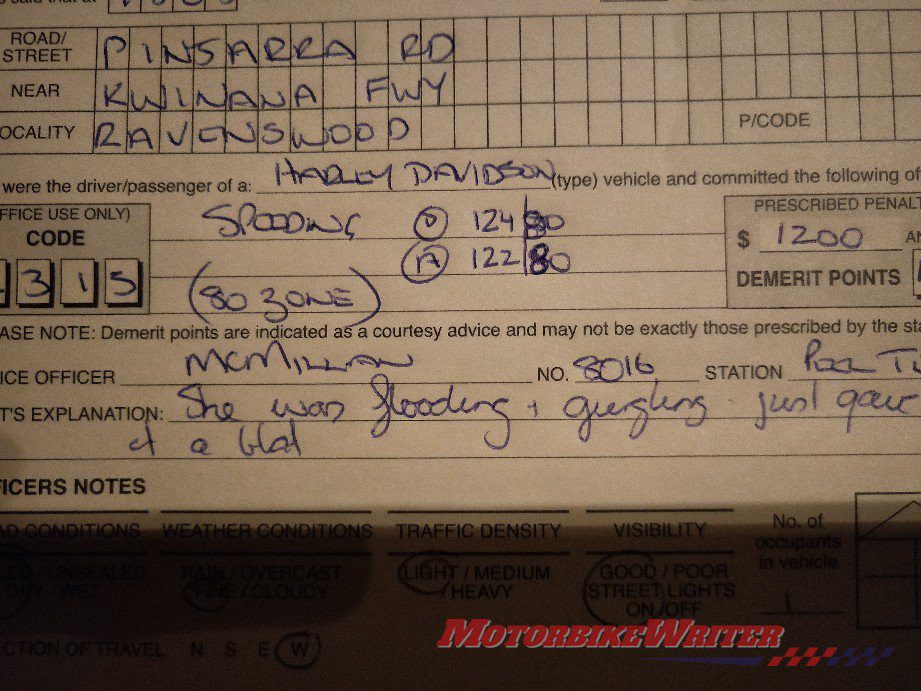 said that at
ROAD/
STREET PINJARRA RD
NEAR KWINANA FWY
OCALITY RAVENSWOOD P/CODE
were the driver/passenger of a: HARLEY DAVIDSON (type) vehicle and committed the following of
FFICE USE ONLY) SPEEDING V 124/80 PRESCRIBED PENAL
CODE A 122/80 $ 1200 AN
315 (80 ZONE) DEMERIT POINTS
ASE NOTE: Demerit points are indicated as a courtesy advice and may not be exactly those prescribed by the sta
ICE OFFICER MCMILLAN NO. 8016 STATION
T'S EXPLANATION: She was flooding + gurgling. just gave
it a blat
FICERS NOTES
AD CONDITIONS WEATHER CONDITIONS TRAFFIC DENSITY VISIBILITY No. of
occupants
in vehicle
ED / UNSEALED RAIN / OVERCAST LIGHT / MEDIUM GOOD / POOR
DRY / WET FINE / CLOUDY / HEAVY STREET LIGHTS
ON/OFF
CTION OF TRAVEL N S E W
MOTORBIKEWRITER